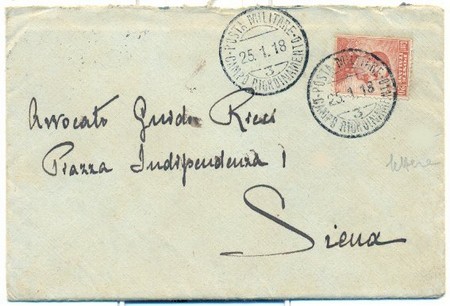 POSTA MILITARE
25.1.18
3
CAMPO RIORDINAMENTO
POSTA MILITARE
25.1.18
3
CAMPO RIORDINAMEN
Avvocato Guido Ricci
Piazza Indipendenza 1
Siena
lettera